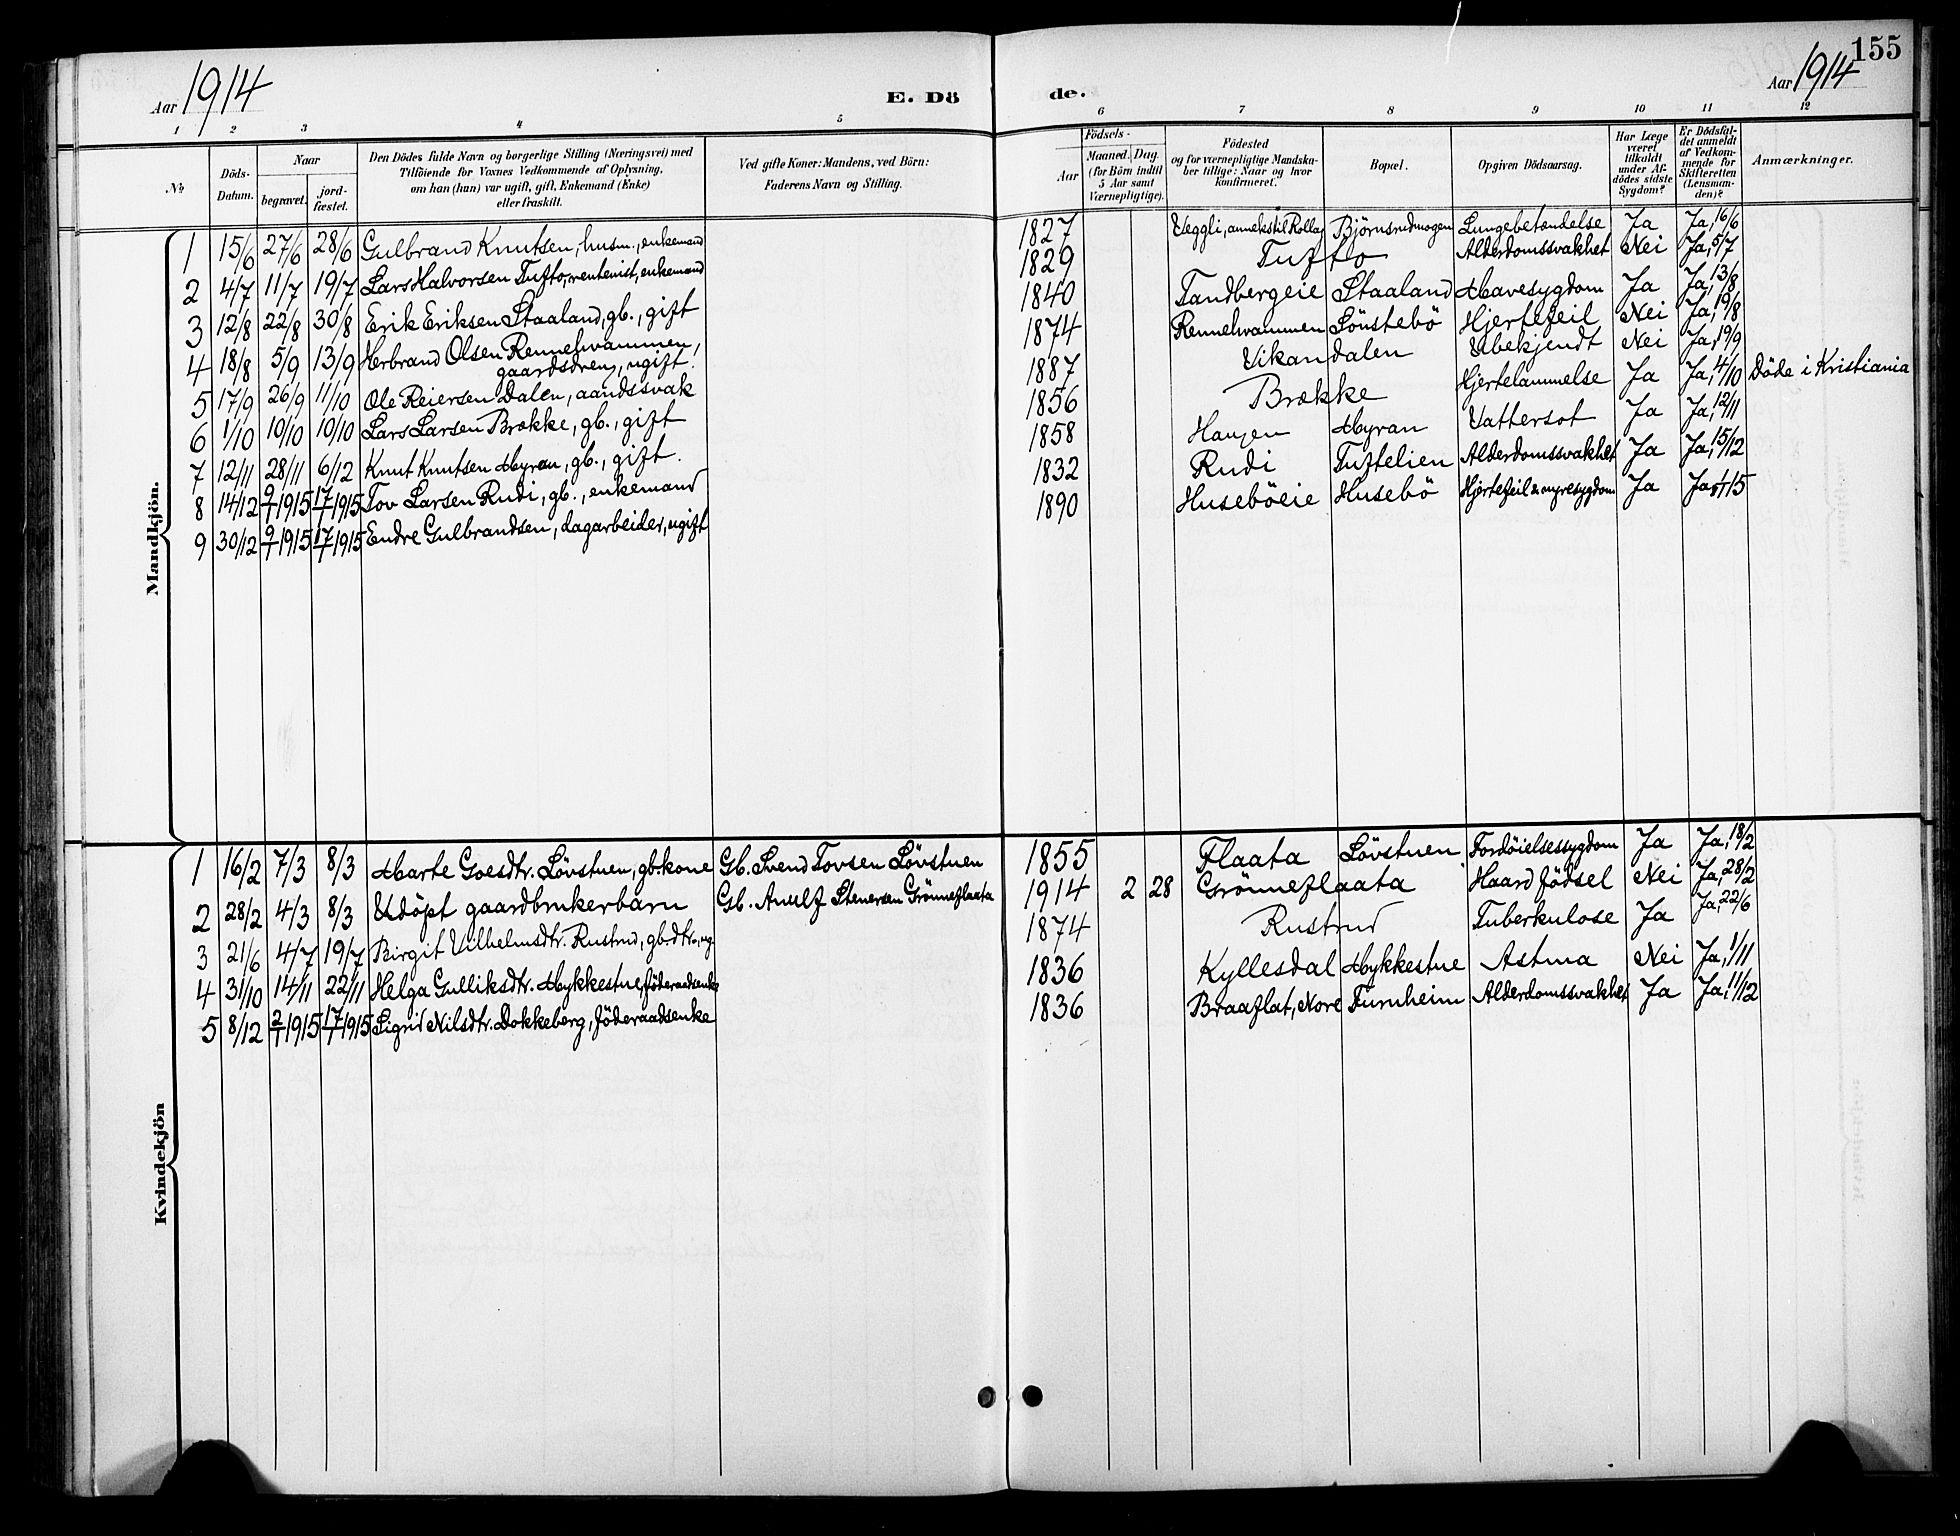 155
Aar 1914
E. Dö
de.
Aar 1914
1 2 3 4 5 6 7 8 9 10 11 12
№
Döds-
Datum.
Naar
begravet.
jord-
fæstet.
Den Dödes fulde Navn og borgerlige Stilling (Næringsvei) med
Tilföiende for Voxnes Vedkommende af Oplysning,
om han (hun) var ugift, gift, Enkemand (Enke)
eller fraskilt.
Ved gifte Koner: Mandens, ved Börn:
Faderens Navn og Stilling.
Födsels-
Aar
Maaned. Dag.
(for Börn indtil
5 Aar samt
Værnepligtige).
Födested
og for værnepligtige Mandska-
ber tillige: Naar og hvor
konfirmeret.
Bopæl.
Opgiven Dödsaarsag.
Har Læge
været
tilkaldt
under Af-
dödes sidste
Sygdom?
Er Dödsfal-
det anmeldt
af Vedkom-
mende for
Skifteretten
(Lensman-
den)?
Anmærkninger.
Mandkjön.
1 15/6 27/6 28/6 Gulbrand Knutsen, husm., enkemand 1827 Veggli, anneks til Rollag Björnsrudmogen Lungebetendelse Ja Ja, 16/6
2 4/7 11/7 19/7 Lars Halvorsen Tufto, rentenist, enkemand 1829 Tufto Alderdomssvakhet Nei Ja, 5/7
3 12/8 22/8 30/8 Erik Eriksen Staaland, gb., gift 1840 Tandbergeie Staaland Mavesygdom Ja Ja, 13/8
4 18/8 5/9 13/9 Herbrand Olsen Rennehvammen, 1874 Rennehvammen Sönstebö Hjertefeil Nei Ja, 19/8
gaardsdreng, ugift!
5 17/9 26/9 11/10 Ole Reiersen Dalen, aandssvak 1887 Vikandalen Ubekjendt Nei Ja, 19/9
6 1/10 10/10 10/10 Lars Larsen Brække, gb., gift 1856 Brække Hjertelammelse Ja Ja, 4/10 Döde i Kristiania
7 12/11 28/11 6/12 Knut Knutsen Myran, gb., gift. 1858 Haugen Myran Vattersot Ja Ja, 12/11
8 14/12 9/1 1915 17/1 1915 Tov Larsen Rudi, gb., enkemand 1832 Rudi Tuftelien Alderdomssvakhet Ja Ja, 15/12
9 30/12 9/1 1915 17/1 1915 Endre Gulbrandsen, dagarbeider, ugift 1890 Huseböeie Husebö Hjertefeil & nyresygdom Ja Ja, 15
Kvindekjön
1 16/2 7/3 8/3 Marte Goesdtr. Lövstuen, gb.kone Gb. Svend Tovsen Lövstuen 1855 Flaata Lövstuen Fordöielsessygdom Ja Ja, 18/2
2 28/2 4/3 8/3 Udöpt gaardbrukerbarn Gb. Anulf Stenersen Grönneflaata 1914 2 28 Grönneflaata Haard födsel Nei Ja, 28/2
3 21/6 4/7 19/7 Birgit Vilhelmsdtr. Rustrud, gb.dtr., ug. 1874 Rustrud Tuberkulose Ja Ja, 22/6
4 31/10 14/11 22/11 Helga Gulliksdtr. Mykkestue, föderaadsenke 1836 Kyllesdal Mykkestue Astma Nei Ja, 1/11
5 8/12 2/1 1915 17/1 1915 Sigrid Nilsdtr. Dokkeberg, föderaadsenke 1836 Braaflat, Nore Furnheim Alderdomssvakhet Ja Ja, 11/12